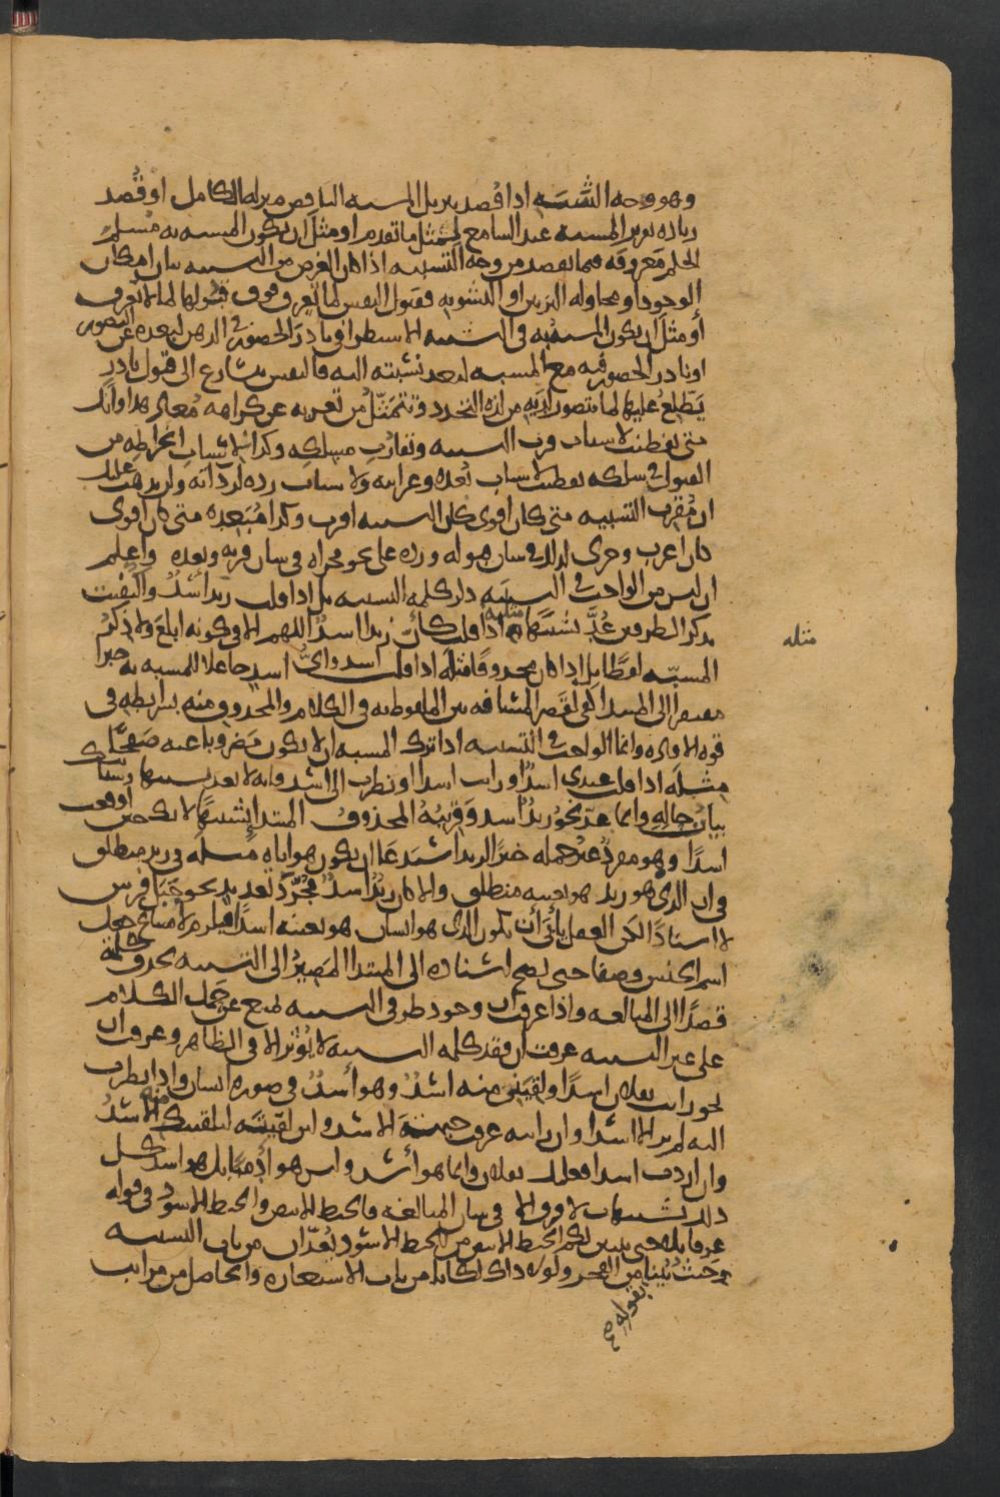 وهو وجه التشبيه اذا قصد تنزيل المشبه الناقص منزلة الكامل او قصد
زيادة تقرير المشبه عند السامع لمثل ما تقدم او مثل ان يكون المشبه به مسلم
الحكم معروفه فيما يقصد من وجه التشبيه اذا كان الغرض من التشبيه بيان امكان
الوجود او محاولة التزيين او التشويه فقبول النفس لما تعرف فوق قبولها لما لا تعرف
او مثل ان يكون المشبه به في التشبيه الاستطرافي نادر الحضور في الذهن لبعده عن التصور
او نادر الحضور فيه مع المشبه لبعد نسبته اليه فالنفس تتسارع الى قبول نادر
يطلع عليها لما تتصور لديه من لذة التجدد وتتمثل من تعريه عن كراهة معاد هذا وانك
متى تفطنت لاسباب قرب التشبيه وتقارب مسلكه وكذا لاسباب انخراطه من
القبول في سلكه تفطنت لاسباب بعده وغرابته ولاسباب رده لرداءته ولن يذهب عليك
ان مقرب التشبيه متى كان اقوى كان التشبيه اقرب وكذا مبعده متى كان اقوى
كان اغرب وجرى لذلك في شان قبوله ورده على نحو مجراه في شان قربه وبعده واعلم
ان ليس من الواجب في التشبيه ذكر كلمة التشبيه بل اذا قلت زيد اسد واكتفيت
بذكر الطرفين عد تشبيها مثله اذا قلت كأن زيدا اسد اللهم الا في كونه ابلغ ولا ذكر
المشبه لفظا بل اذا كان محذوفا مثله اذا قلت اسد واي اسد جاعلا للمشبه به خبرا
مفتقرا الى المبتدا كفى لقصر المسافة بين الملفوظ به في الكلام والمحذوف منه بشرطه في
قوة الافادة وانما الواجب في التشبيه اذا ترك المشبه ان لا يكون مضروبا عنه صفحا
مثله اذا قلت عندي اسد او رايت اسدا او نظرت الى اسد فانه لا يعد تشبيها وستاتيك
بيان حاله وانما عد نحو زيد اسد وقرينه المحذوف المبتدا تشبيها لانك حين اوقعت
اسدا وهو مفرد غير جملة خبرا لزيد استدعى ان يكون هو اياه مثله في زيد منطلق
في ان الذي هو زيد هو بعينه منطلق والا كان زيد اسد مجرد تعديد نحو خيل فرس
لا اسنادا لكن العقل يابى ان يكون الذي هو انسان هو بعينه اسدا فيلزم لامتناع جعل
اسم الجنس وصفا حتى يصح اسناده الى المبتدا المصير الى التشبيه بحذف كلمته
قصدا الى المبالغة واذا عرفت ان وجود طرفي التشبيه يمنع عن حمل الكلام
على غير التشبيه عرفت ان فقد كلمة التشبيه لا يؤثر الا في الظاهر وعرفت ان
نحو رايت بفلان اسدا ولقيني منه اسد وهو اسد في صورة انسان واذا نظرت
اليه لم تر الا اسدا وان رايته عرفت جبهة الاسد ولئن لقيته ليلقينك منه الاسد
وان اردت اسدا فعليك بفلان وانما هو اسد وليس هو آدميا بل هو اسد كل
ذلك تشبيهات لا فرق الا في شان المبالغة فالخيط الابيض والخيط الاسود في قوله
عز قائلا حتى يتبين لكم الخيط الابيض من الخيط الاسود يعدان من باب التشبيه
حيث بينا من الفجر ولولا ذاك لكانا من باب الاستعارة والحاصل من مراتب
بقوله صح
مثله